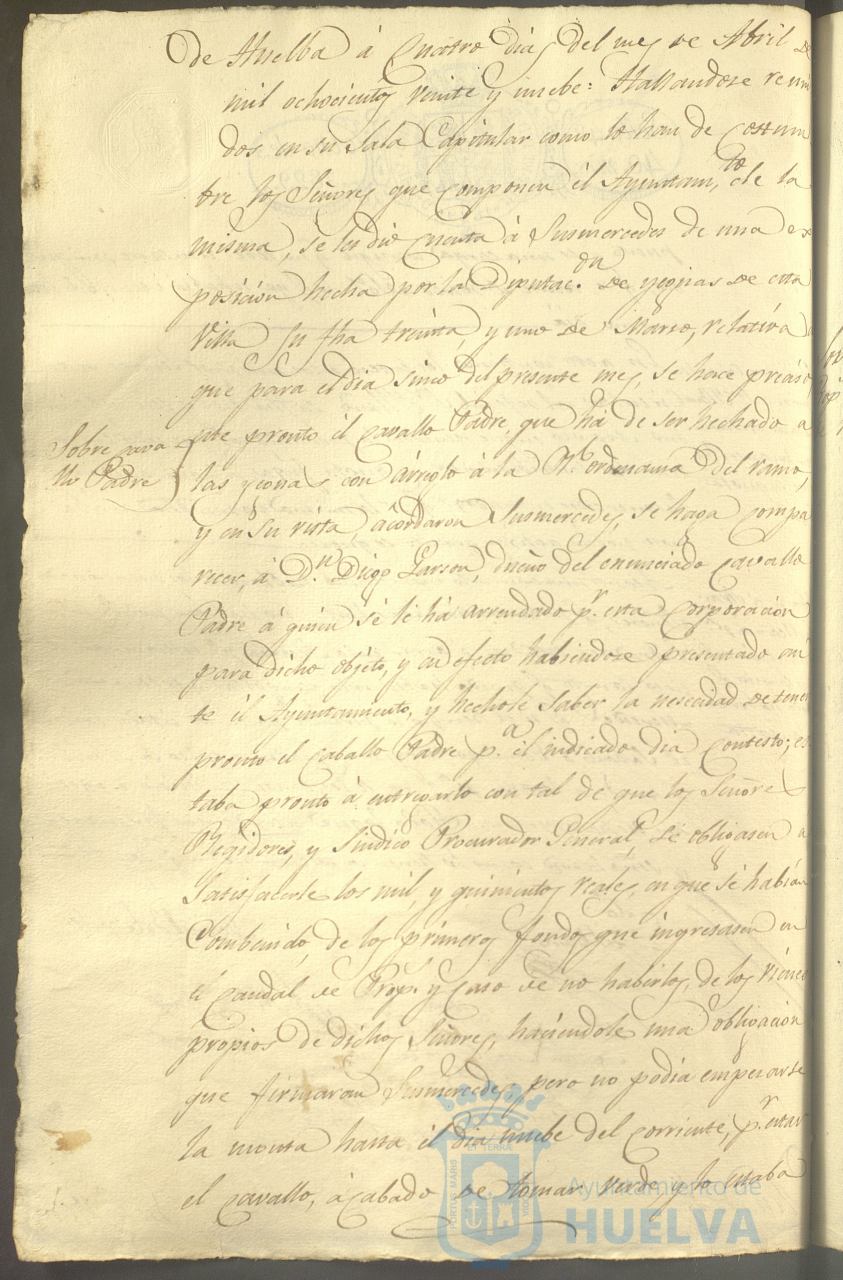 de Huelba à Cuatro dias del mes de Abril de
mil ochocientos veinte y nuebe: Hallandose reuni
dos en su Sala Capitular como lo han de costum
bre los Señores que componen él Ayuntam,to de la
misma, se les dio cuenta à Susmercedes de una ex
posicion hecha por la Diputac.on de yeguas de esta
Villa su fha treinta, y uno de Marso, relativa à
que para el dia sinco del presente mes, se hace preciso
Sobre cava
llo Padre
este pronto él cavallo Padre, que há de ser hechado a
las yeguas con árreglo à la Rl. ordenansa del ramo,
y en su vista, acordaron Susmercedes, se haga compa
recer, à D.n Diego Garson, dueño del enunciado Cavallo
Padre á quien sé le há arrendado p.r esta Corporacion
para dicho objeto, y en efecto habiendose presentado an
te él Ayuntamiento, y hechole saber la nescesidad de tener
pronto el caballo Padre p.a él indicado dia contesto; es
taba pronto à entregarlo con tal de que los Señores
Regidores, y Sindico Procurador General, se obligasen a
Satisfacerle los mil, y quinientos reales, en que se habian
Combenido de los primeros fondos que ingresasen en
él caudal de Prop.s y caso de no haberlos, de los vienes
propios de dichos Señores, haciendole una obligacion
que firmaran Susmercedes; pero no podia empesarse
la monta hasta él dia nuebe del corriente, p.r estar
el cavallo, ácabado de tomar verde y lo estaba
Ayuntamiento de
HUELVA
PORTUS MARIS
ET TERRAE